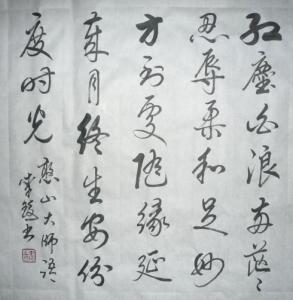 红塵白浪两茫々
忍辱柔和是妙
方到處随缘延
歲月终生安份
度时光
憨山大師语
书